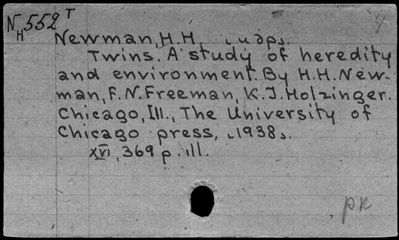 N552T
H
Newman, H.H.
Twins. A study of heredity
and environment. By H.H. New-
man, F.N. Freeman, K.J. Holzinger.
Chicago, Ill., The University of
Chicago press, ‹1938›.
XVI, 369 p. ill.